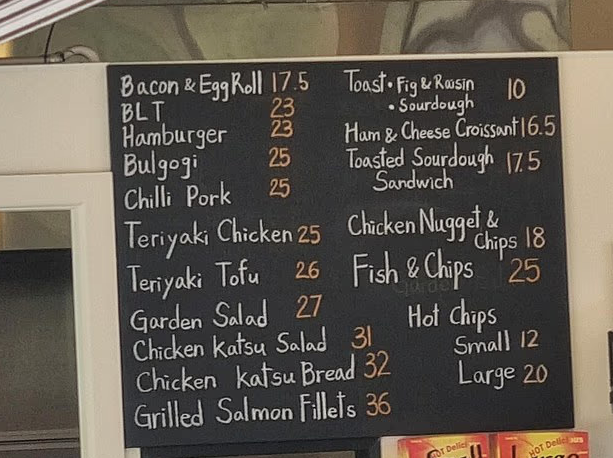 Bacon & Egg Roll 17.5
BLT 23
Hamburger 23
Bulgogi 25
Chilli Pork 25
Teriyaki Chicken 25
Teriyaki Tofu 26
Garden Salad 27
Chicken Katsu Salad 31
Chicken Katsu Bread 32
Grilled Salmon Fillets 36
Toast • Fig & Raisin 10
• Sourdough
Ham & Cheese Croissant 16.5
Toasted Sourdough 17.5
Sandwich
Chicken Nugget &
Chips 18
Fish & Chips 25
Hot Chips
Small 12
Large 20